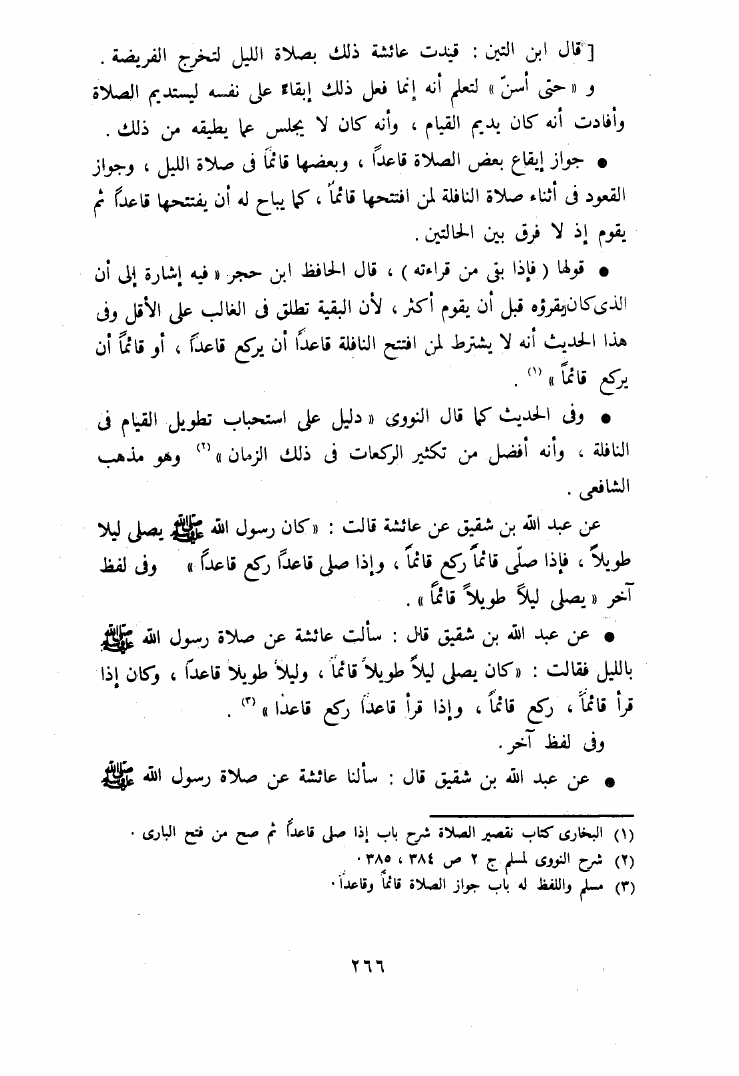 [ قال ابن التين : قيدت عائشة ذلك بصلاة الليل لتخرج الفريضة .
و « حتى أسنّ » لتعلم أنه إنما فعل ذلك إبقاءً على نفسه ليستديم الصلاة
وأفادت أنه كان يديم القيام ، وأنه كان لا يجلس عما يطيقه من ذلك .
● جواز إيقاع بعض الصلاة قاعداً ، وبعضها قائماً فى صلاة الليل ، وجواز
القعود فى أثناء صلاة النافلة لمن افتتحها قائماً ، كما يباح له أن يفتتحها قاعداً ثم
يقوم إذ لا فرق بين الحالتين .
● قولها ( فإذا بقى من قراءته ) ، قال الحافظ ابن حجر « فيه إشارة إلى أن
الذى كان يقرؤه قبل أن يقوم أكثر ، لأن البقية تطلق فى الغالب على الأقل وفى
هذا الحديث أنه لا يشترط لمن افتتح النافلة قاعداً أن يركع قاعداً ، أو قائماً أن
يركع قائماً » (١) .
● وفى الحديث كما قال النووى « دليل على استحباب تطويل القيام فى
النافلة ، وأنه أفضل من تكثير الركعات فى ذلك الزمان » (٢) وهو مذهب
الشافعى .
عن عبد الله بن شقيق عن عائشة قالت : « كان رسول الله ﷺ يصلى ليلا
طويلاً ، فإذا صلّى قائماً ركع قائماً ، وإذا صلى قاعداً ركع قاعداً » وفى لفظ
آخر « يصلى ليلاً طويلاً قائماً » .
● عن عبد الله بن شقيق قال : سألت عائشة عن صلاة رسول الله ﷺ
بالليل فقالت : « كان يصلى ليلاً طويلاً قائماً ، وليلاً طويلا قاعداً ، وكان إذا
قرأ قائماً ، ركع قائماً ، وإذا قرأ قاعداً ركع قاعدا » (٣) .
وفى لفظ آخر .
● عن عبد الله بن شقيق قال : سألنا عائشة عن صلاة رسول الله ﷺ
(١) البخارى كتاب تقصير الصلاة شرح باب إذا صلى قاعداً ثم صح من فتح البارى .
(٢) شرح النووى لمسلم ج ٢ ص ٣٨٤ ، ٣٨٥ .
(٣) مسلم واللفظ له باب جواز الصلاة قائماً وقاعداً .
٢٦٦